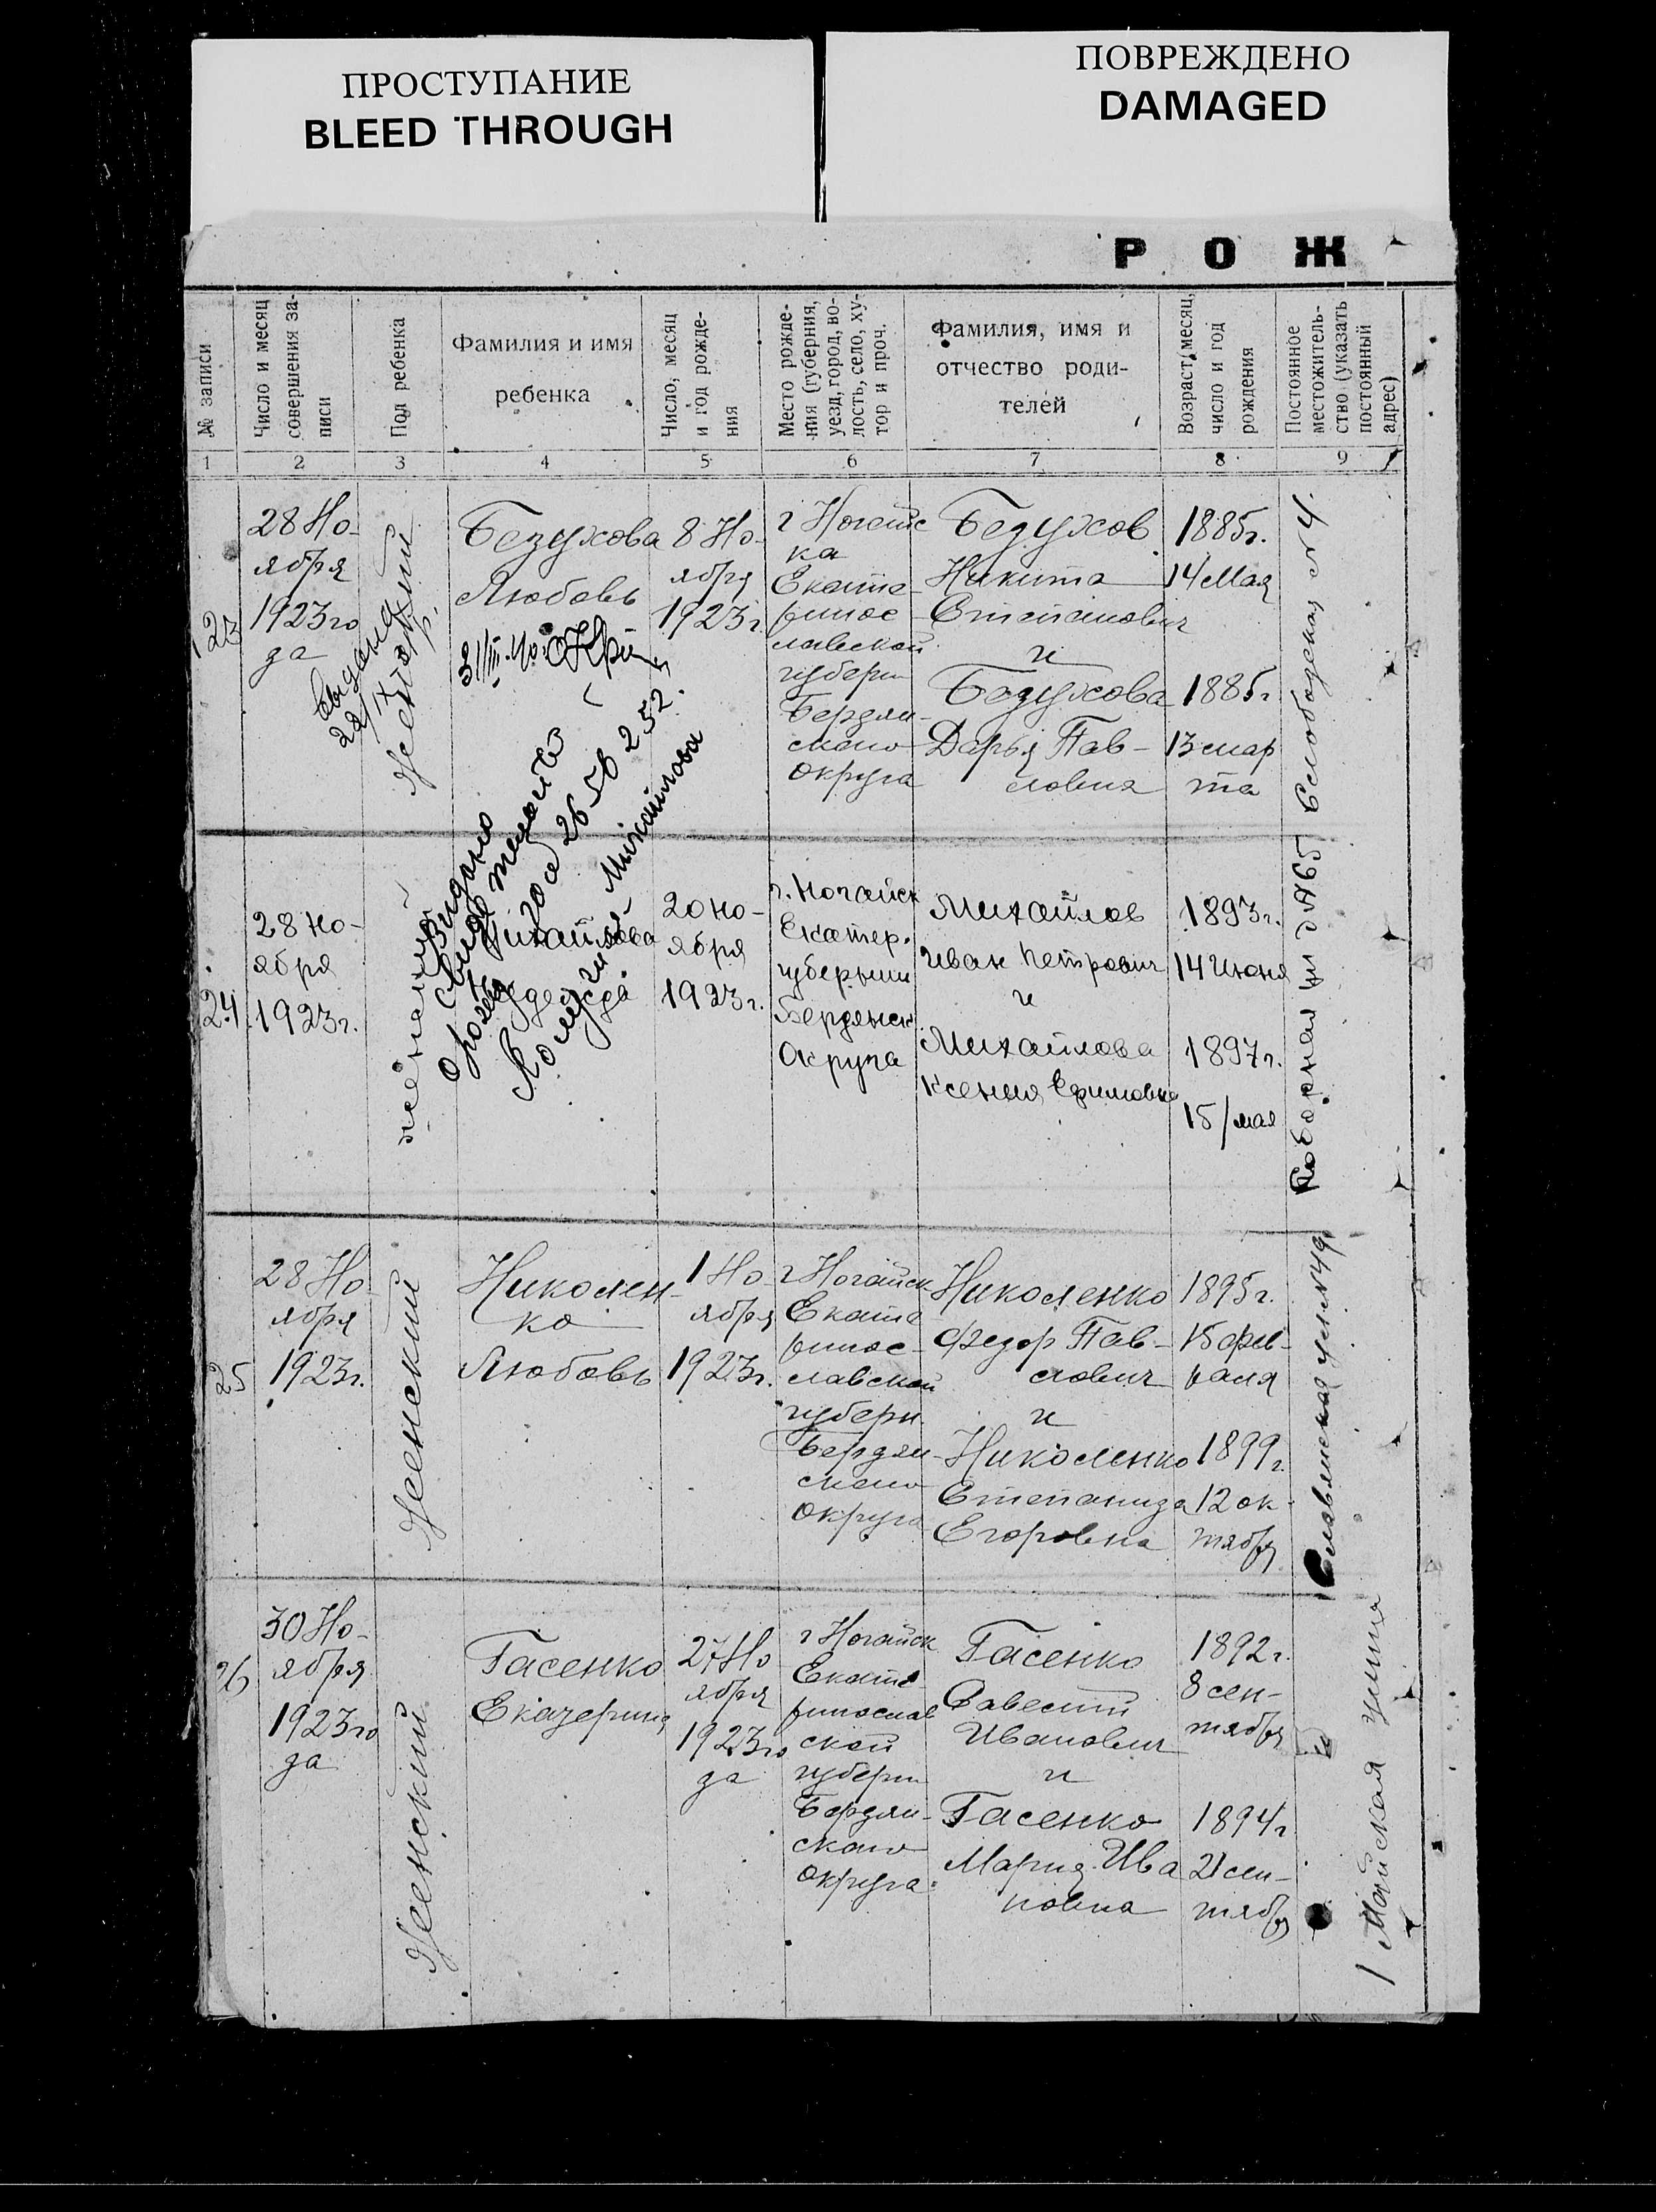 ПРОСТУПАНИЕ
BLEED THROUGH
ПОВРЕЖДЕНО
DAMAGED
Р О Ж
№ записи
Число и месяц
совершения за-
писи
Пол ребенка
Фамилия и имя
ребенка
Число, месяц
и год рожде-
ния
Место рожде-
ния (губерния,
уезд, город, во-
лость, село, ху-
тор и проч.
Фамилия, имя и
отчество роди-
телей
Возраст, месяц,
число и год
рождения
Постоянное
местожитель-
ство (указать
постоянный
адрес)
1
2
3
4
5
6
7
8
9
123
28 Но-
ября
1923го
да
Женский
Безухова
Любовь
8 Но-
ября
1923г.
г Ногайс
ка
Екате-
ринос
лавской
губерн
Бердян-
скаго
округа
Безухов
Никита
Степанович
и
Безухова
Дарья Пав-
ловна
1885г.
14 Мая
1885г
13 мар
та
Слободская N 4.
24
28 но-
ября
1923г.
женский
Выдано
Михайлова
Надежда
20 но-
ября
1923г.
г. Ногайск
Екатер.
губернии
Бердянск
Округа
Михайлов
Иван Петрович
и
Михайлова
Ксения Ефимовна
1893г.
14 Июня
1897г.
15/мая
25
28 Но-
ября
1923г.
Женский
Николен-
ко
Любовь
1 Но-
ября
1923г.
г Ногайск
Екате
ринос-
лавской
губерн.
Бердян-
скаго
округа
Николенко
Федор Пав-
лович
и
Николенко
Степанида
Егоровна
1895г.
15 фев-
раля
1899г.
12 ок-
тября
Славянская ул. N 49
26
30 Но-
ября
1923го
да
Женский
Гасенко
Екатерина
27 Но
ября
1923го
да
г Ногайск
Екате-
ринослав
ской
губерн
Бердян-
скаго
округа
Гасенко
Савестий
Иванович
и
Гасенко
Мария Ива
новна
1892г.
8 сен-
тября
1894г
21 сен-
тября
1 Майская улица